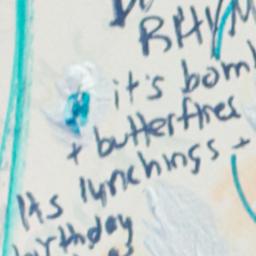 RHYM
it's bomb
+ butterflies
Its lynchings +
birthday